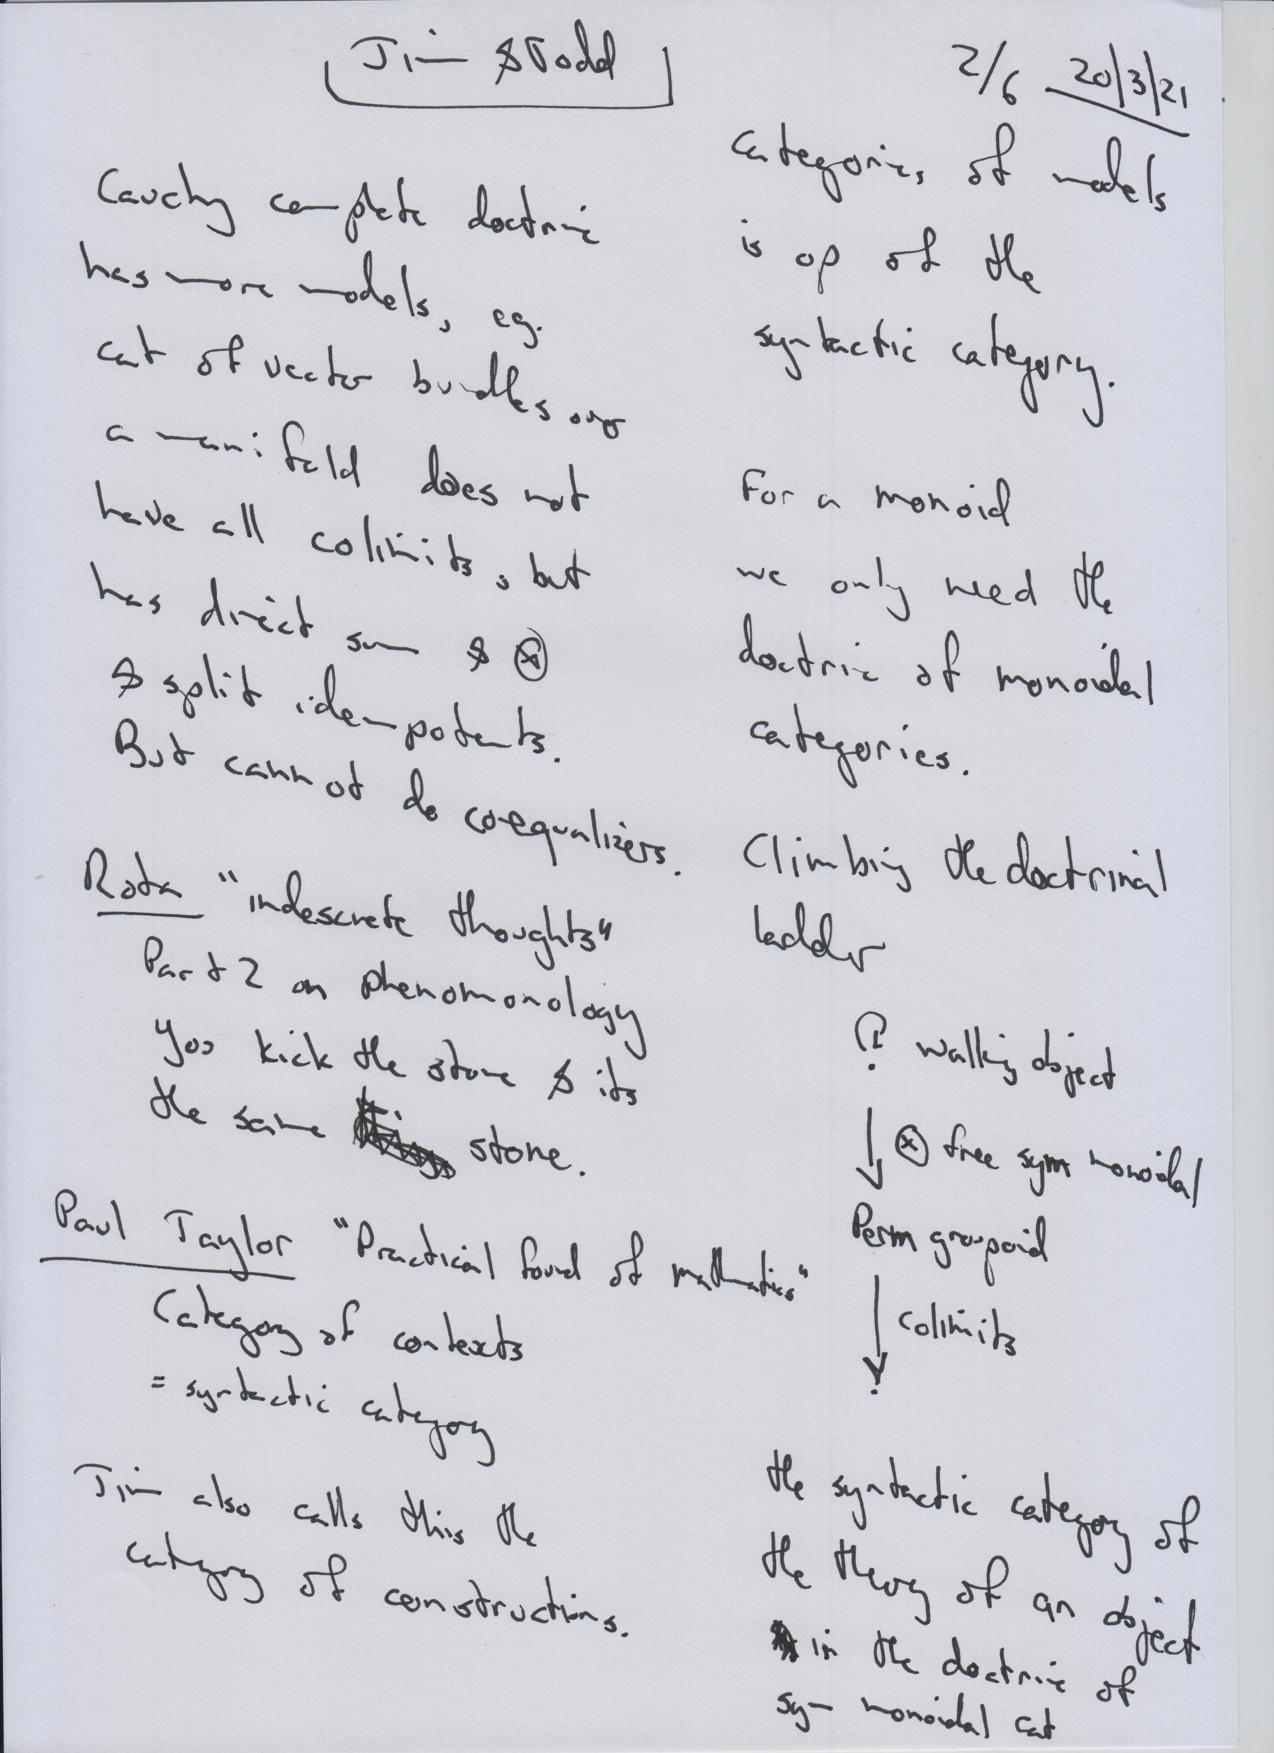 Jim & Todd
2/6 20/3/21
Cauchy complete doctrine
has more models, eg.
cat of vector bundles over
a manifold does not
have all colimits, but
has direct sum & ⊗
& split idempotents.
But cannot do coequalizers.
Rota "indescrete thoughts"
Part 2 on phenomonology
you kick the stone & its
the same stone.
Paul Taylor "Practical found of mathematics"
Category of contexts
= syntactic category
Jim also calls this the
category of constructions.
categories of models
is op of the
syntactic category.
For a monoid
we only need the
doctrine of monoidal
categories.
Climbing the doctrinal
ladder
walking object
↓ ⊗ free sym monoidal
Perm groupoid
↓ colimits
the syntactic category of
the theory of an object
in the doctrine of
sym monoidal cat